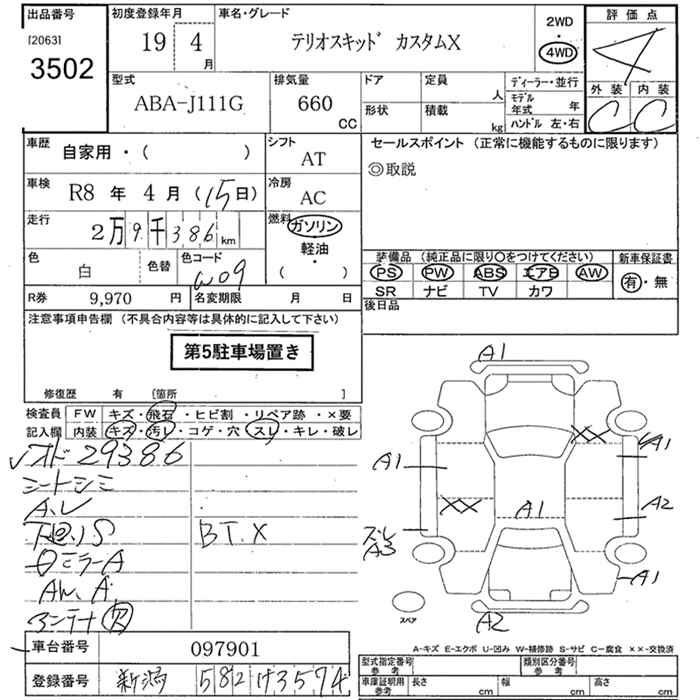 出品番号
[2063]
3502
初度登録年月
19 4
月
車名・グレード
テリオスキッド カスタムX
2WD
・
4WD
評価点
4
外装 内装
C C
型式
ABA-J111G
排気量
660
CC
ドア
形状
定員
人
積載
kg
ディーラー・並行
モデル年式 年
ハンドル 左・右
車歴 自家用・( )
シフト AT
車検 R8 年 4 月 (15日)
冷房 AC
走行 2万9千386km
燃料 ガソリン
軽油
・
( )
色 白
色替
色コード W09
R券 9,970 円
名変期限 月 日
セールスポイント (正常に機能するものに限ります)
◎取説
装備品 (純正品に限り○をつけてください)
PS PW ABS エアB AW
SR ナビ TV カワ
新車保証書
有・無
後日品
注意事項申告欄 (不具合内容等は具体的に記入して下さい)
第5駐車場置き
修復歴 有 [箇所 ]
検査員記入欄
FW キズ・飛石・ヒビ割・リペア跡・×要
内装 キズ・汚レ・コゲ・穴・スレ・キレ・破レ
オド 29386
シートシミ
A.レ
下廻りS
BT.X
ミラーA
AW.A
アンテナ欠
車台番号 097901
登録番号 新潟 582 け3574
A1
XX
A1
A1
XX
A1
A2
ズレ
A3
A1
A2
スペア
A-キズ E-エクボ U-凹み W-補修跡 S-サビ C-腐食 ××-交換済
型式指定番号
参考
類別区分番号
参考
車庫証明用
参考
長さ cm
幅 cm
高さ cm